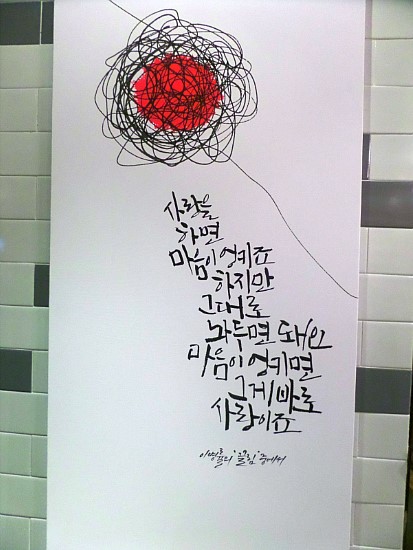 사랑을
하면
마음이 엉키죠
하지만
그대로
놔두면 돼요
마음이 엉키면
그게 바로
사랑이죠
이병률의 '끌림' 중에서